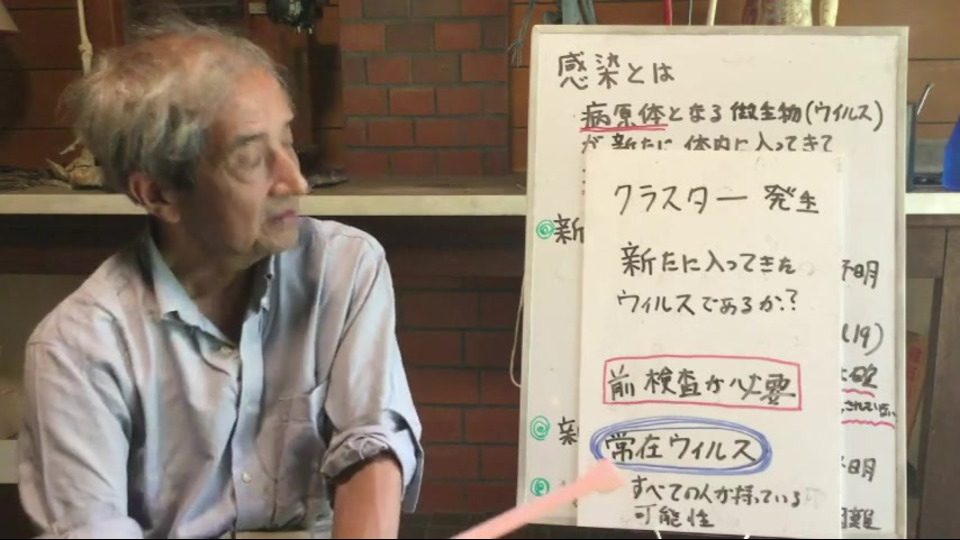 感染とは
病原体となる微生物(ウイルス)
が新たに体内に入ってきて
クラスター発生
新たに入ってきた
ウィルスであるか?
前検査が必要
常在ウィルス
すべての人が持っている
可能性
新
不明
19)
確
されていない
新
不明
困難